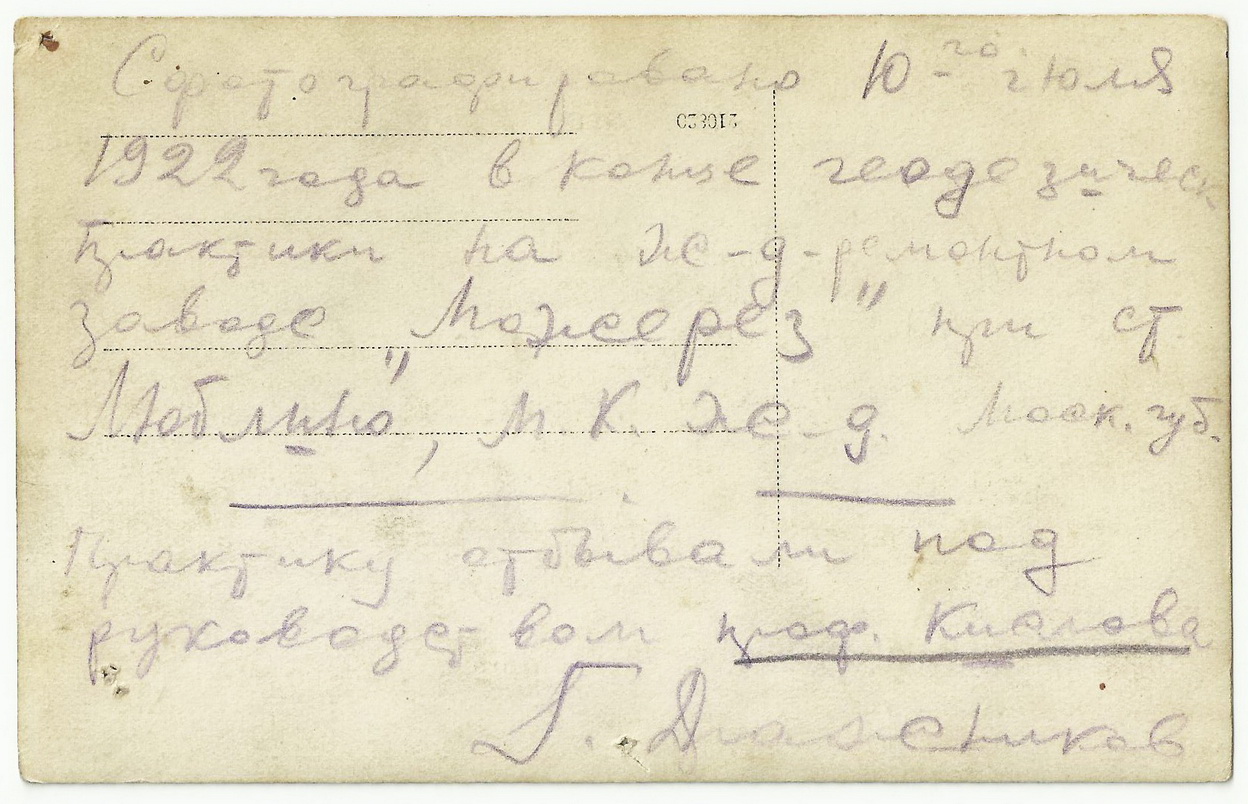 Сфотографировано 10-го июля
1922 года в конце геодезическ.
практики на ж-д-ремонтном
заводе „Можерез" при ст.
„Люблино", М. К. ж-д. Моск. губ.
Практику отбывали под
руководством проф.
Б.